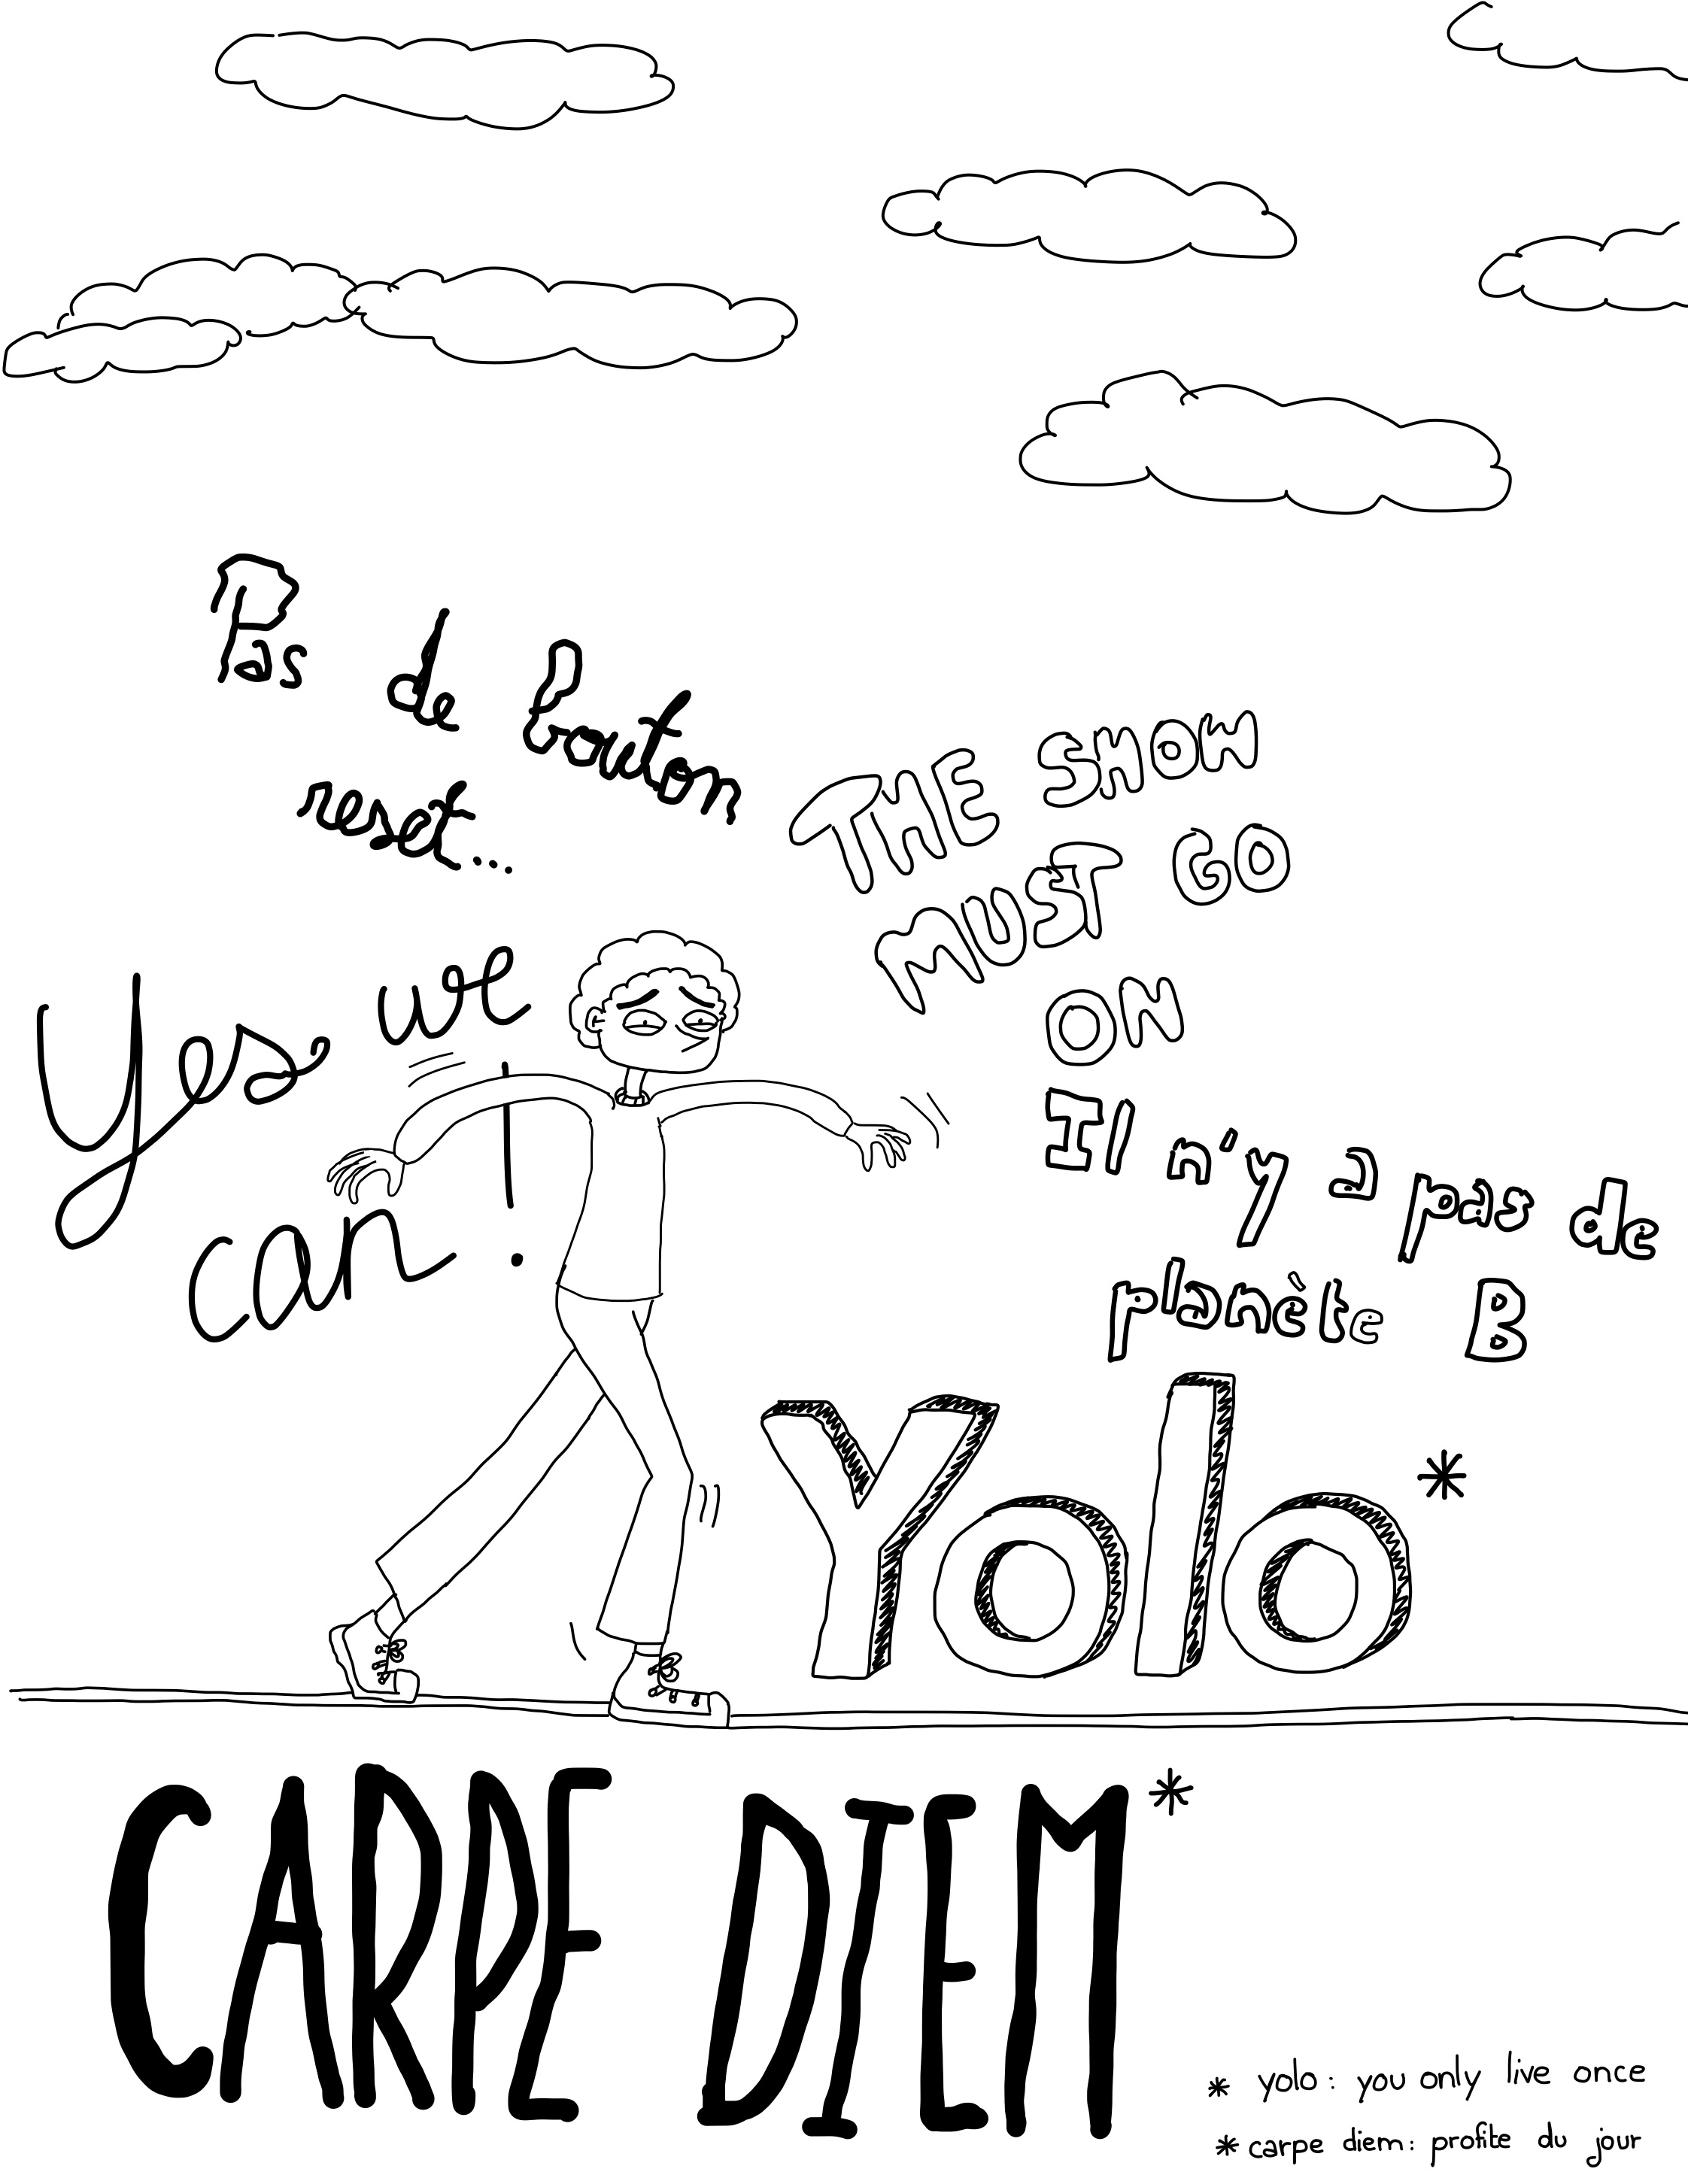 Pas de bouton
reset...
THE SHOW
MUST GO
ON
Yes we
can !
Il n'y a pas de
planète B
Yolo*
CARPE DIEM*
* yolo : you only live once
* carpe diem : profite du jour